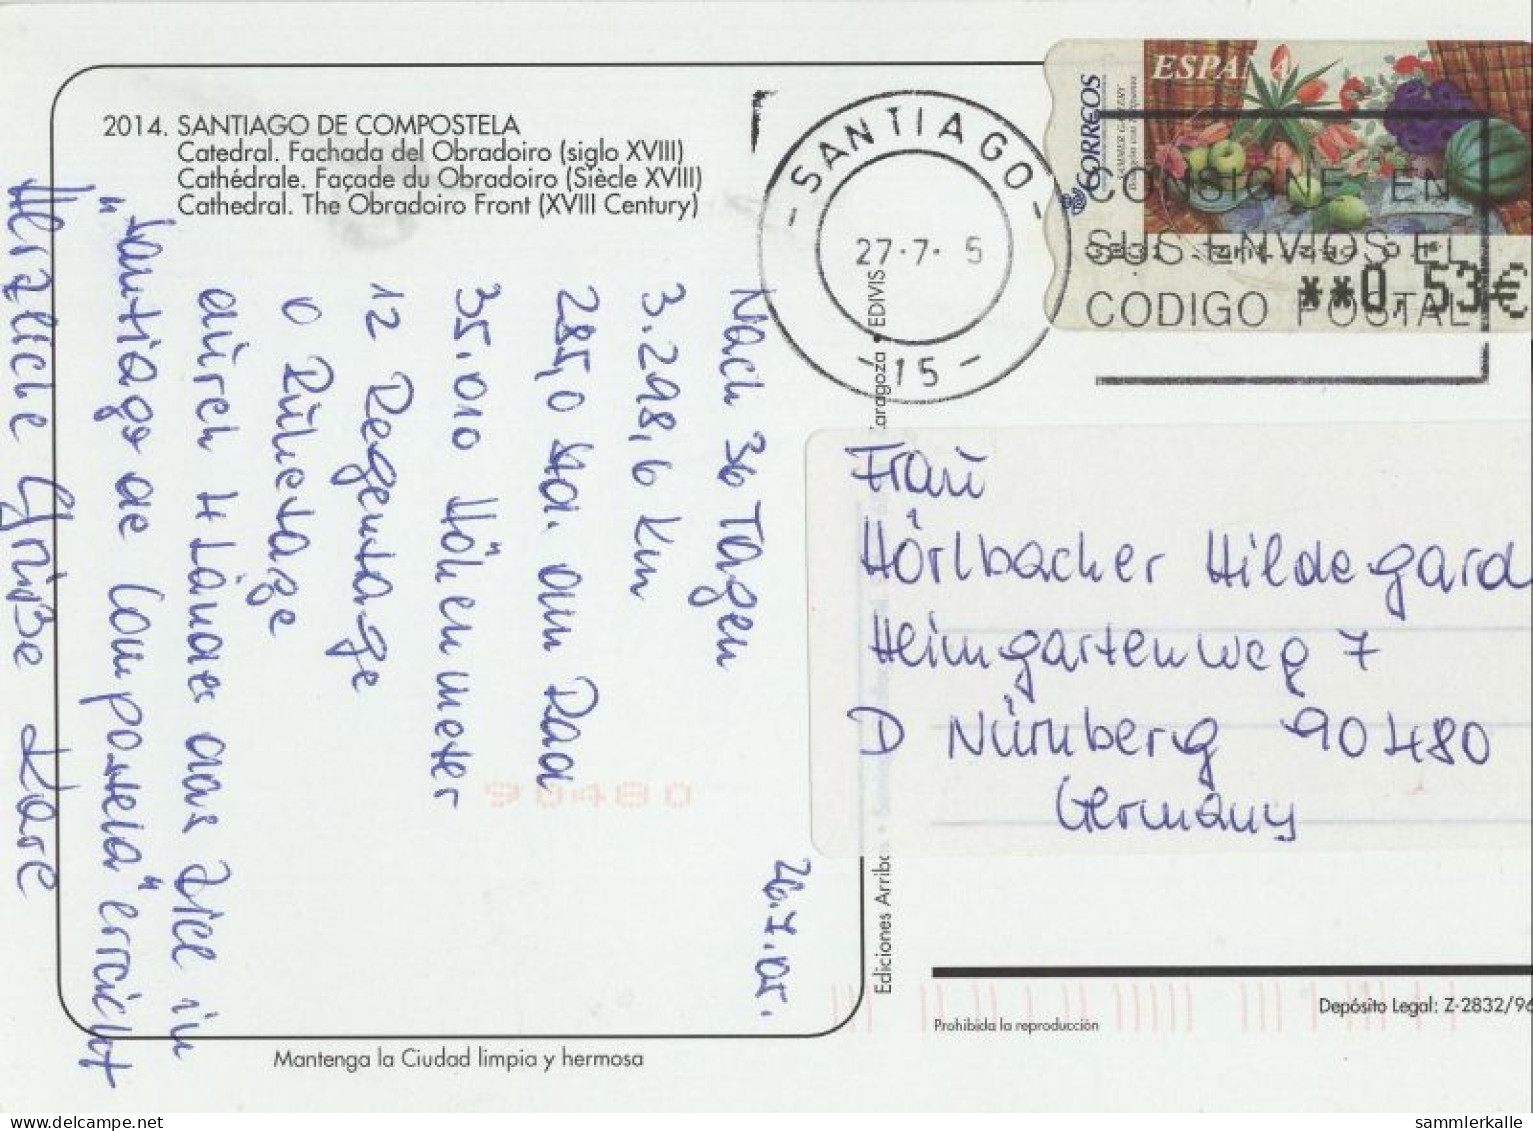 2014. SANTIAGO DE COMPOSTELA
Catedral. Fachada del Obradoiro (siglo XVIII)
Cathédrale. Façade du Obradoiro (Siècle XVIII)
Cathedral. The Obradoiro Front (XVIII Century)
26.7.05.
Nach 36 Tagen
3.298,6 Km
285,0 Std. am Rad
35.010 Höhenmeter
12 Regentage
0 Ruhetage
durch 4 Länder das Ziel in
"Santiago de Compostela" erreicht
Herzliche Grüße
90480
Mantenga la Ciudad limpia y hermosa
Ediciones Arribas
Zaragoza • EDIVIS
- SANTIAGO -
27·7· 5
- 15 -
CORREOS
ESPAÑA
CONSIGNE EN
SUS ENVIOS EL
CODIGO POSTAL
**0,53€
Frau
Hörlbacher Hildegard
Heimgartenweg 7
D Nürnberg 90480
Germany
Depósito Legal: Z-2832/96
Prohibida la reproducción
sammlerkalle